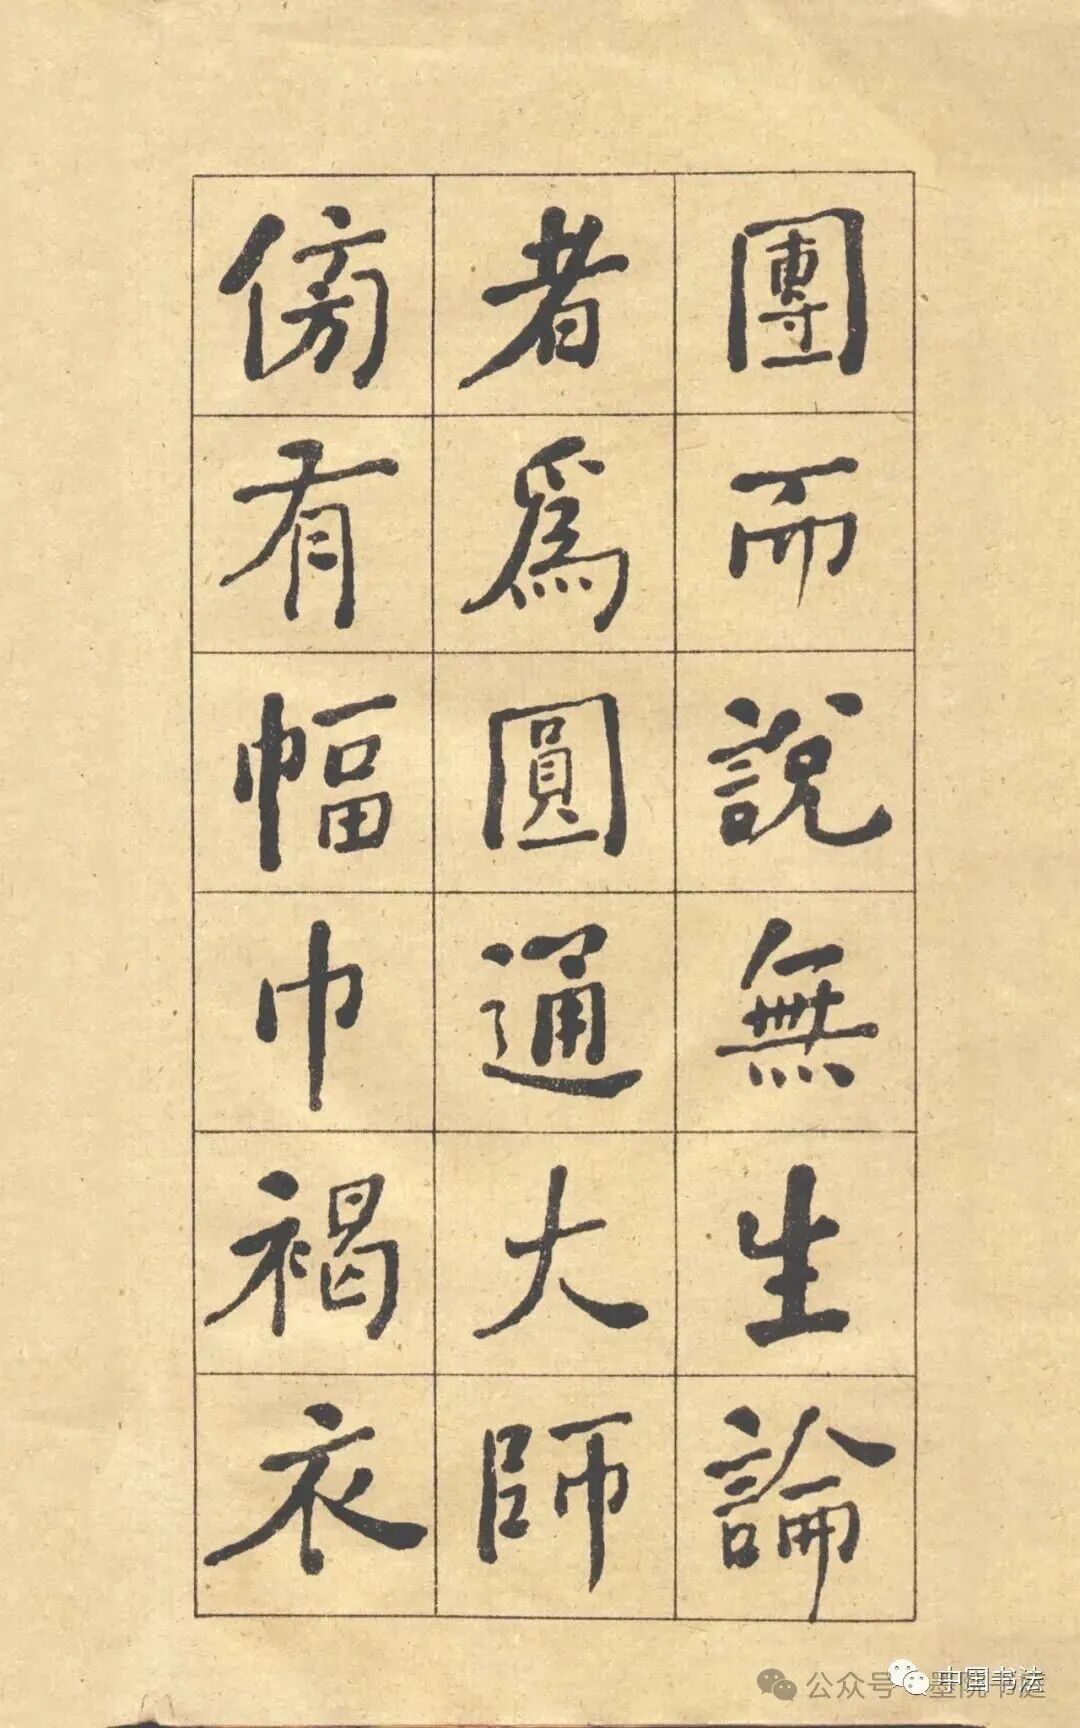 團而說無生論
者爲圓通大師
傍有幅巾褐衣
公众号·墨院书庭
中国书法